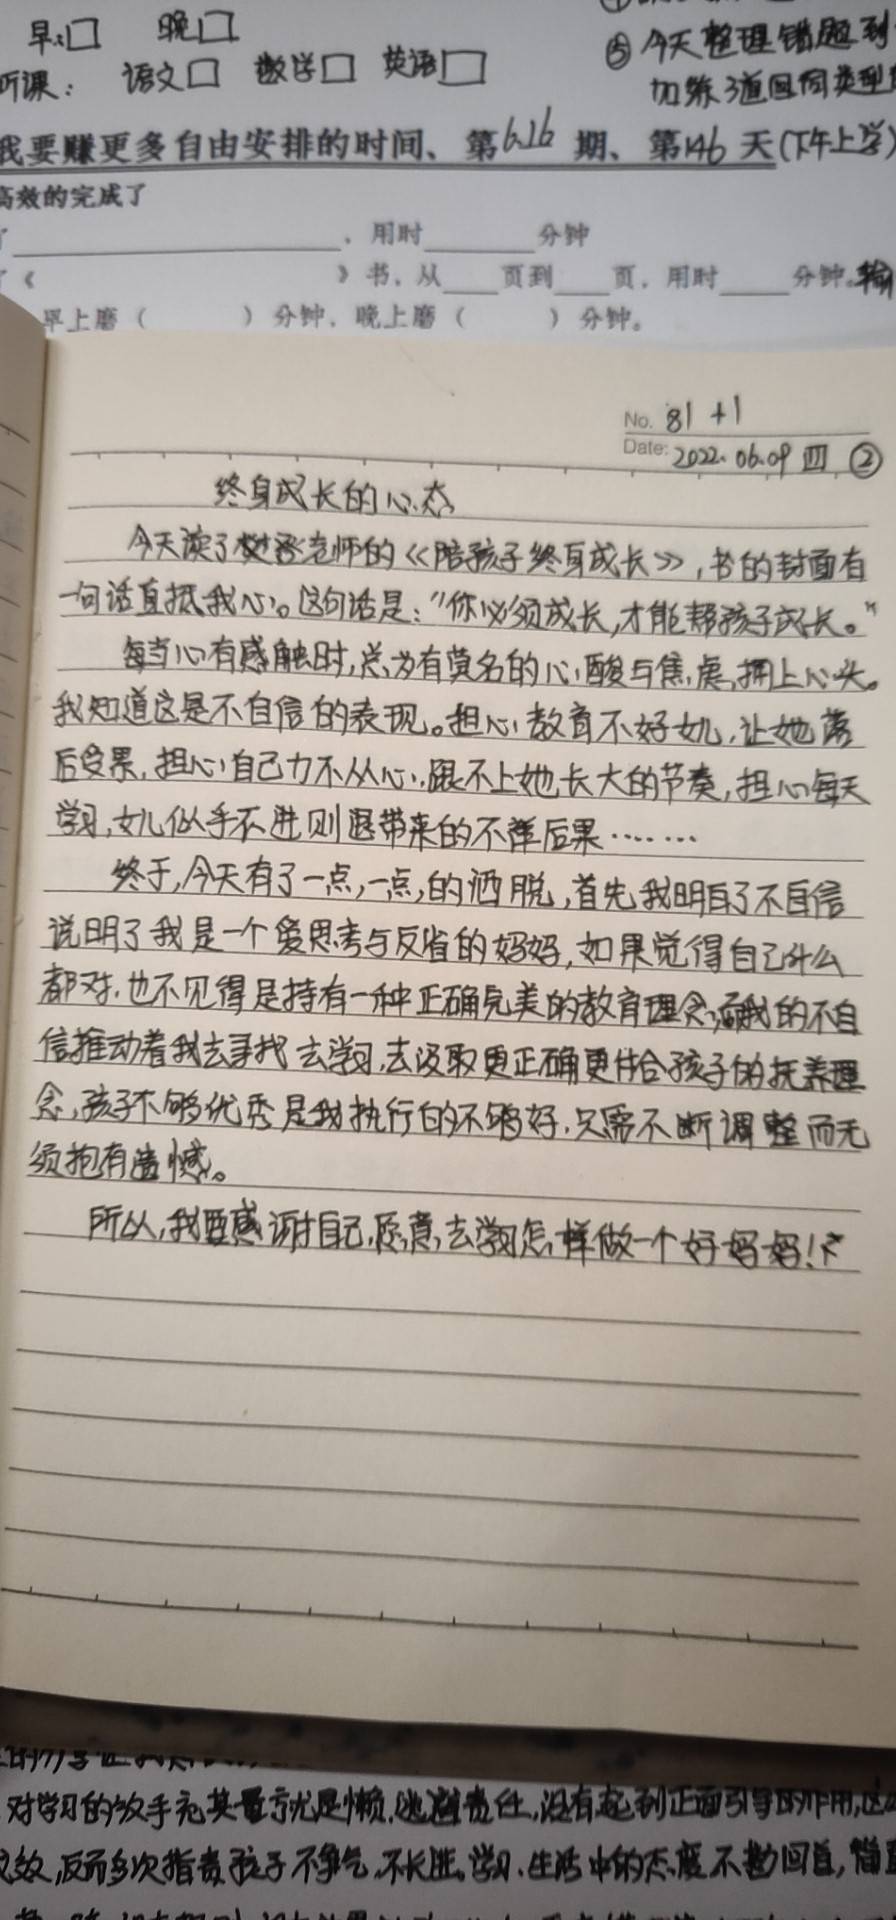 早:□ 晚□
听课: 语文□ 数学□ 英语□
⑤今天整理错题到
加练3道同类型
我要赚更多自由安排的时间、第626期、第146天(下午上学)
高效的完成了
,用时 分钟
《 》书,从 页到 页,用时 分钟。
早上磨( )分钟,晚上磨( )分钟。
No. 81+1
Date: 2022.06.09 四 ②
终身成长的心态
今天读了樊登老师的《陪孩子终身成长》,书的封面有
一句话直抵我心。这句话是:"你必须成长,才能帮孩子成长。"
每当心有感触时,总为有莫名的心酸与焦虑,拥上心头。
我知道这是不自信的表现。担心,教育不好女儿,让她落
后受累,担心自己力不从心,跟不上她长大的节奏,担心每天
学习,女儿似乎不进则退带来的不堪后果……
终于,今天有了一点,一点,的洒脱,首先我明白了不自信
说明了我是一个爱思考与反省的妈妈,如果觉得自己什么
都对,也不见得是持有一种正确完美的教育理念,我的不自
信推动着我去寻找去学习,去汲取更正确更结合孩子的抚养理
念,孩子不够优秀是我执行的不够好,只需不断调整而无
须抱有遗憾。
所以,我要感谢自己,愿意,去学习怎样做一个好妈妈!
对学习的放手充其量就是懒,逃避责任,没有起到正面引导的作用,
效,反而多次指责孩子不争气,不长进,学习、生活中的态度不堪回首,